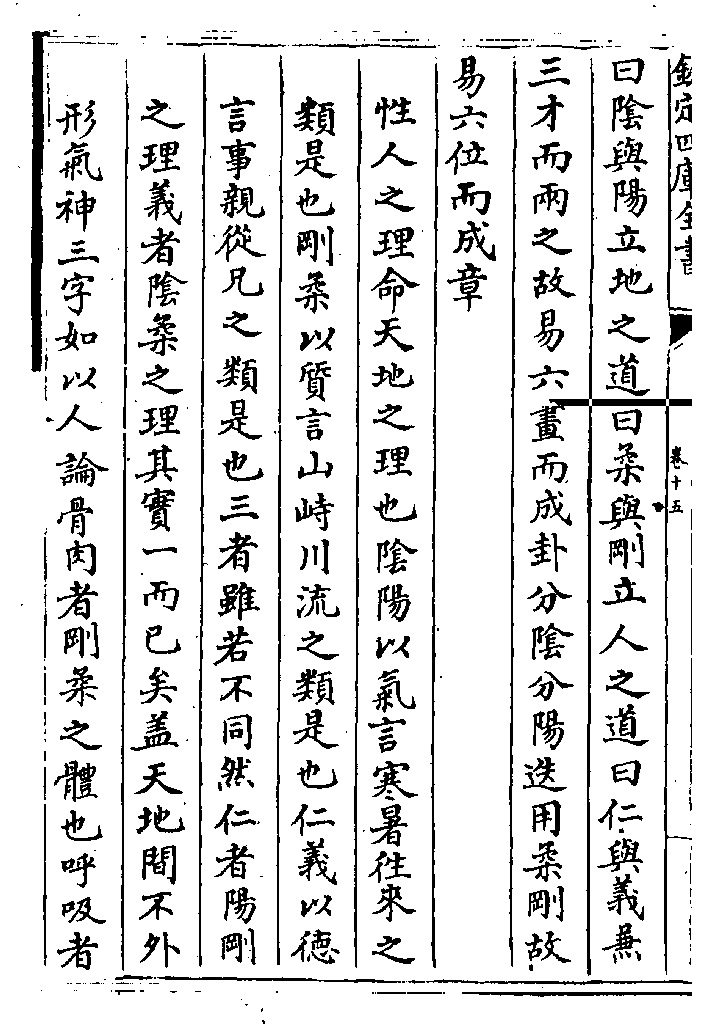 欽定四庫全書
卷十五
曰陰與陽立地之道曰柔與剛立人之道曰仁與義兼
三才而兩之故易六畫而成卦分陰分陽迭用柔剛故
易六位而成章
性人之理命天地之理也陰陽以氣言寒暑往來之
類是也剛柔以質言山峙川流之類是也仁義以德
言事親從兄之類是也三者雖若不同然仁者陽剛
之理義者陰柔之理其實一而已矣蓋天地間不外
形氣神三字如以人論骨肉者剛柔之體也呼吸者